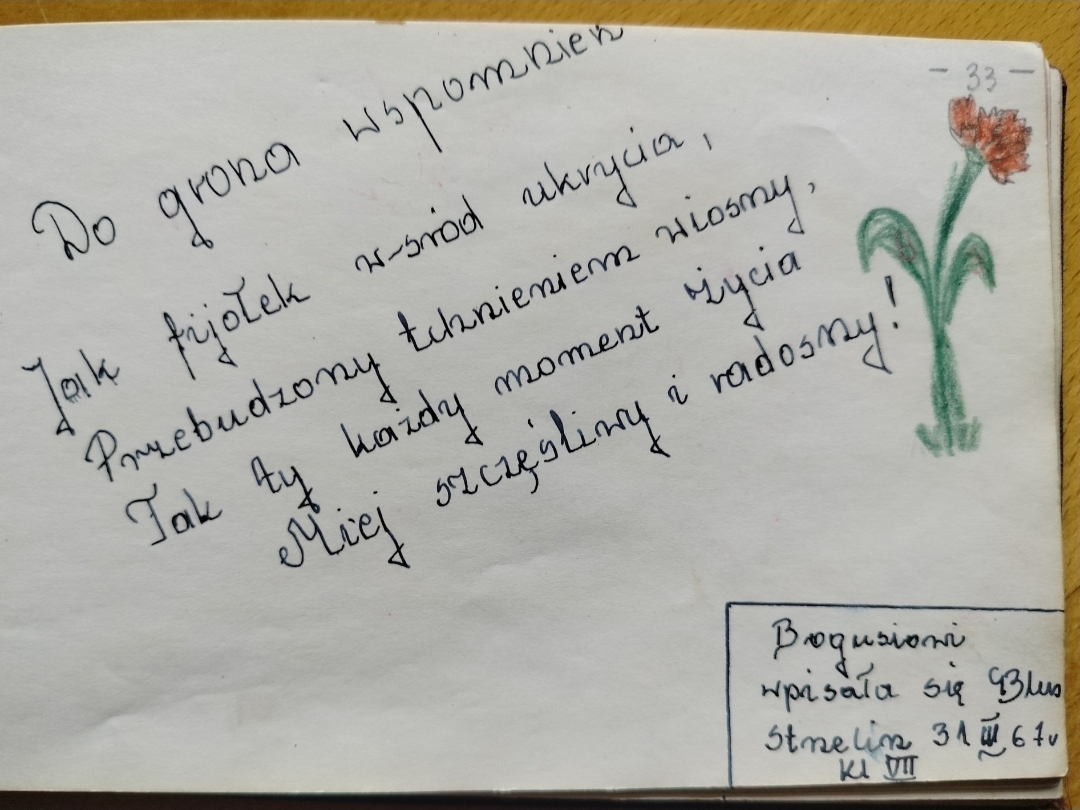 - 33 -
Do grona wspomnień
Jak fijołek w-śród ukrycia,
Przebudzony tchnieniem wiosny,
Tak ty każdy moment życia
Miej szczęśliwy i radosny!
Bogusiowi
wpisała się GBlus
Strzelin 31 III 67r
kl VII